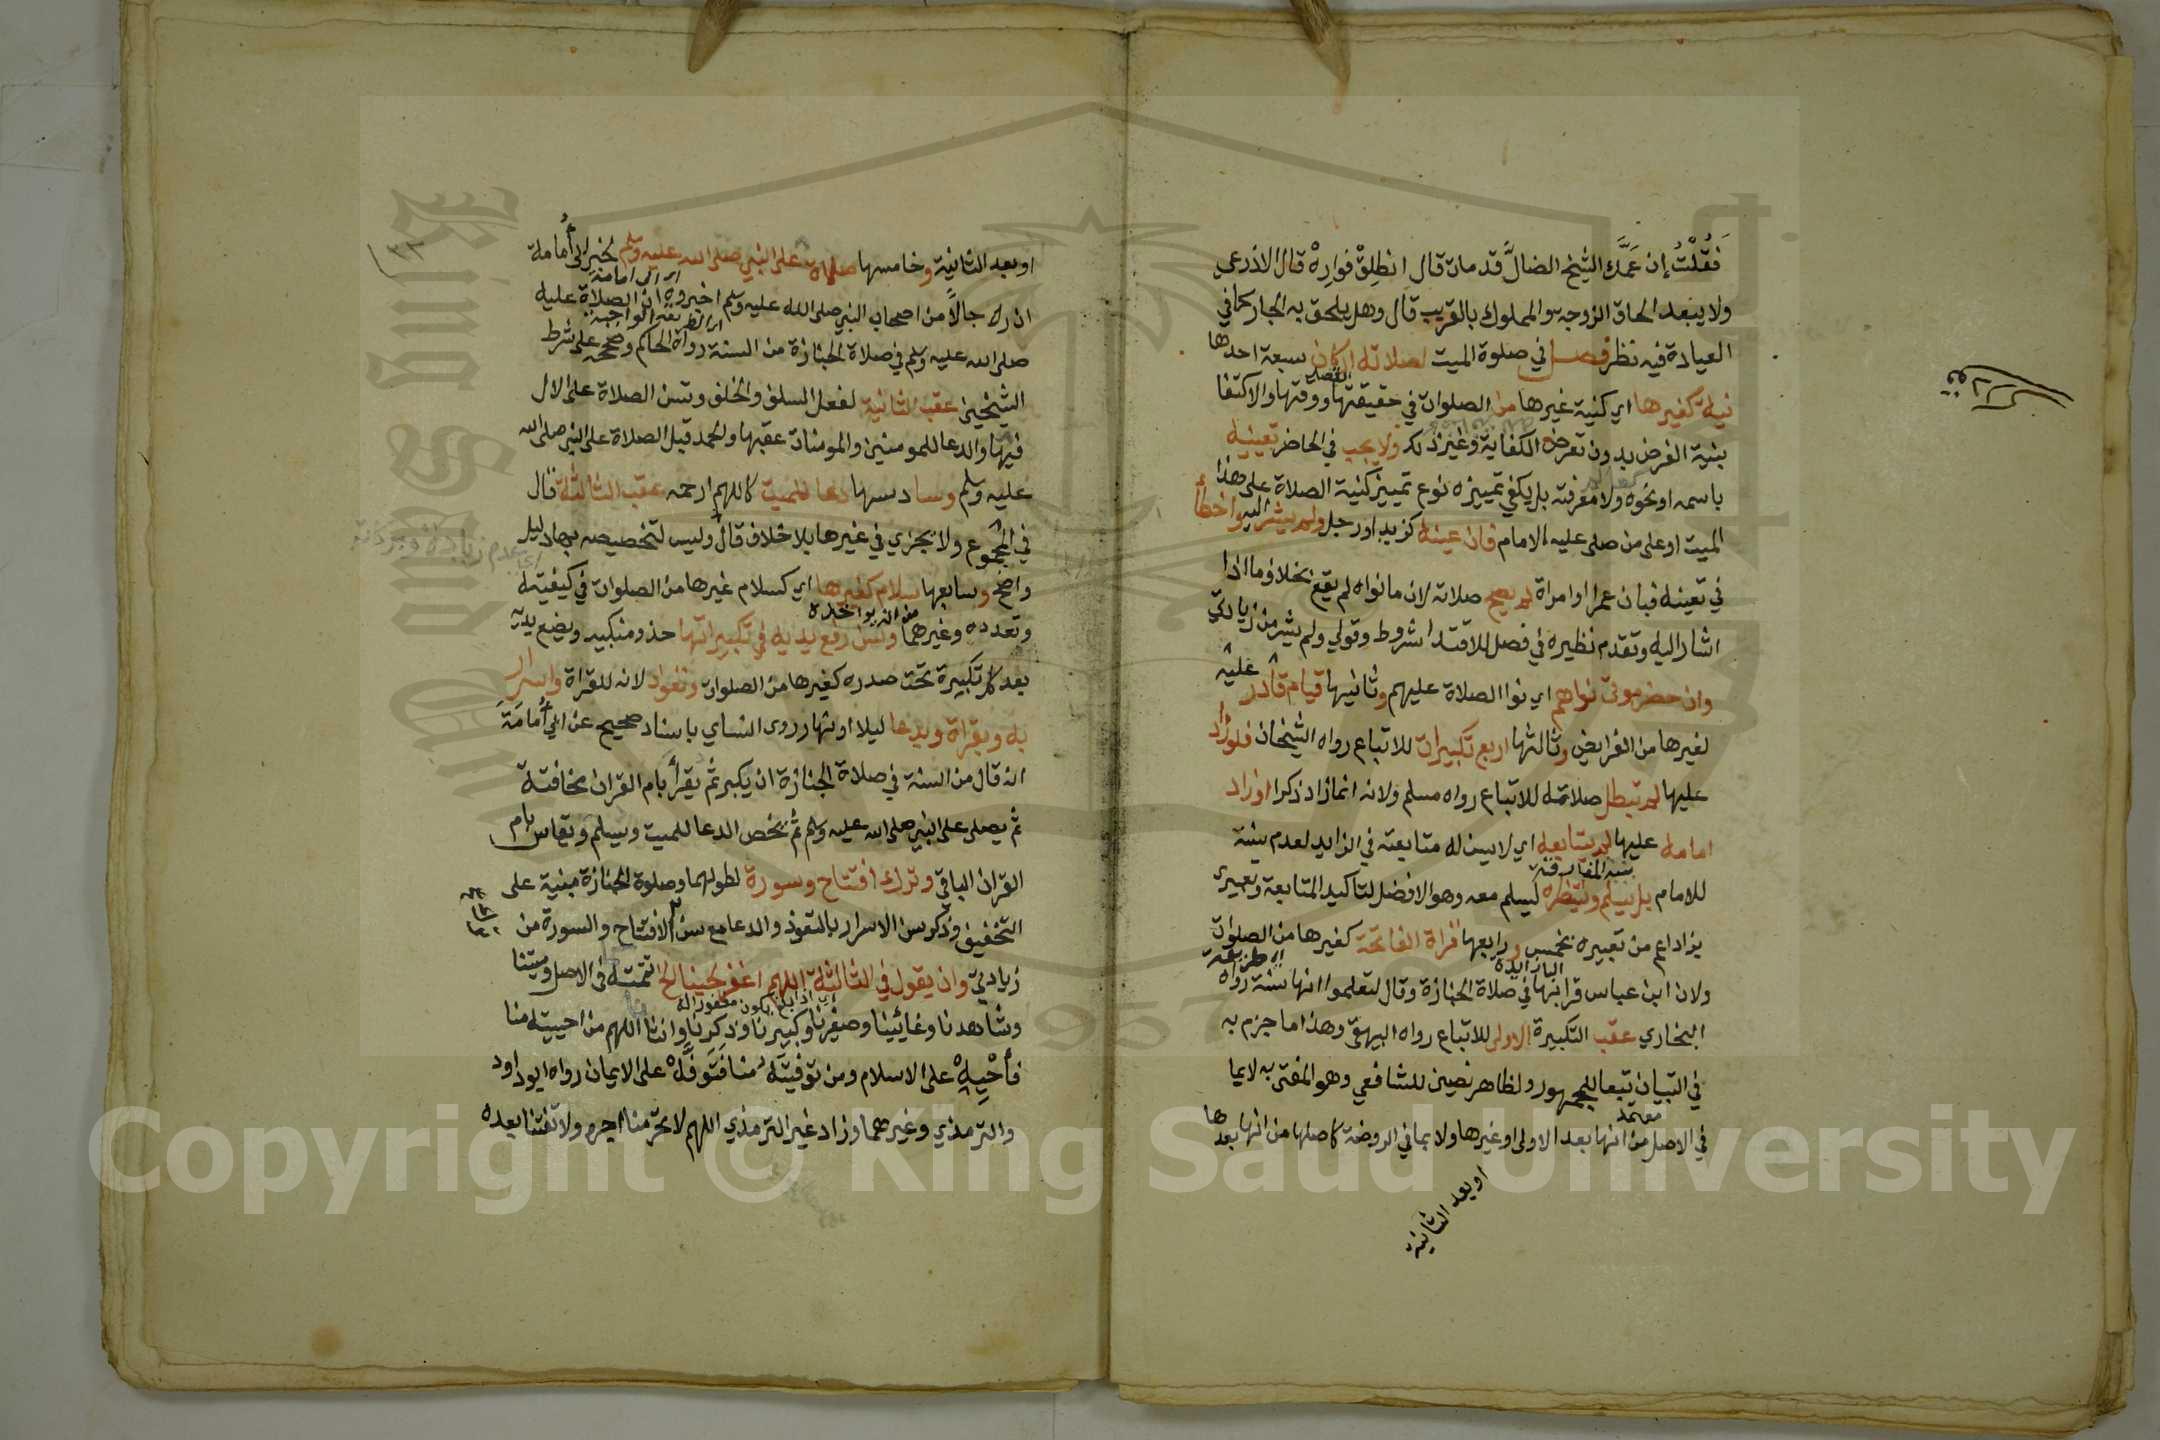 فَقُلْتُ إن عَمَّكَ الشيخ الضالَّ قد مات قال انطلِقْ فوارِهْ قال الاذرعي
ولا يبعد الحاق الزوجة والمملوك بالقريب قال وهل يلحق به الجار كما في
العيادة فيه نظر فصل في صلوة الميت لصلاته اركان سبعة احدها
نية كغيرها اي كنية غيرها من الصلوات في حقيقتها ووقتها والاكتفا
بنية الفرض بدون تعرض للكفاية وغير ذلك ولا يجب في الحاضر تعيينه
باسمه او نحوه ولا معرفته بل يكفي تمييزه نوع تمييز كنية الصلاة على هذا
الميت او على من صلى عليه الامام فان عينه كزيد او رجل ولم يشر اليه واخطأ
في تعيينه فبان عمرا او امراة لم تصح صلاته لان ما نواه لم يقع بخلاف ما اذا
اشار اليه وتقدم نظيره في فصل للاقتدا شروط وقولي ولم يشر من زيادتي
وان حضر موتى نواهم اي نوا الصلاة عليهم وثانيها قيام قادر عليه
لغيرها من الفرايض وثالثها اربع تكبيرات للاتباع رواه الشيخان فلو زاد
عليها لم تبطل صلاته للاتباع رواه مسلم ولانه انما زاد ذكرا او زاد
امامه عليها لم يتابعه اي لا يسن له متابعته في الزايد لعدم سنيته
للامام بل يسلم او ينتظره ليسلم معه وهو الافضل لتاكيد المتابعة وتعبيري
بزاد اعم من تعبيره بخمس ورابعها قراة الفاتحة كغيرها من الصلوات
ولان ابن عباس قرا بها في صلاة الجنازة وقال لتعلموا انها سنة رواه
البخاري عقب التكبيرة الاولى للاتباع رواه البيهقي وهذا ما جزم به
في التبيان تبعا للجمهور ولظاهر نصين للشافعي وهو المفتى به لا بما
معتمد
في الاصل من انها بعد الاولى او غيرها ولا بما في الروضة كاصلها من انها بعدها
او بعد الثانية
او بعد الثانية وخامسها صلاة على النبي صلى الله عليه وسلم لخبر ابي أُمامة
ان رجالا من اصحاب النبي صلى الله عليه وسلم اخبروه ان الصلاة عليه
صلى الله عليه وسلم في صلاة الجنازة من السنة رواه الحاكم وصححه على شرط
الشيخين عقب الثانية لفعل السلف والخلف وتسن الصلاة على الال
فيها والدعا للمومنين والمومنات عقبها والحمد قبل الصلاة على النبي صلى الله
عليه وسلم وسادسها دعا للميت كاللهم ارحمه عقب الثالثة قال
في المجموع ولا يجزي في غيرها بلا خلاف قال وليس لتخصيصه بها دليل
واضح وسابعها سلام كغيرها اي كسلام غيرها من الصلوات في كيفيته
وتعدده وغيرهما وسن رفع يديه في تكبيراتها حذو منكبيه ويضع يديه
بعد كل تكبيرة تحت صدره كغيرها من الصلوات وتعوذ لانه للقراة واسرار
به وبقراة وبدعا ليلا او نهارا روى النساي باسناد صحيح عن ابي أُمامَةَ
انه قال من السنة في صلاة الجنازة ان يكبر ثم يقرأ بام القران مخافتة
ثم يصلي على النبي صلى الله عليه وسلم ثم يخص الدعا للميت ويسلم ويقاس بام
القران الباقي وترك افتتاح وسورة لطولهما وصلوة الجنازة مبنية على
التخفيف وذكر سن الاسرار بالتعوذ والدعا مع سن الافتتاح والسورة من
زيادتي وان يقول في الثالثة اللهم اغفر لحينا الخ تمته في الاصل وميتنا
وشاهدنا وغائبنا وصغيرنا وكبيرنا وذكرنا وانثانا اللهم من احييته منا
فأَحْيِهِ على الاسلام ومن توفيته منا فَتَوَفَّهْ على الايمان رواه ابو داود
والترمذي وغيرهما وزاد غير الترمذي اللهم لا تحرمنا اجره ولا تفتنا بعده
Copyright © King Saud University
King Saud University
1957